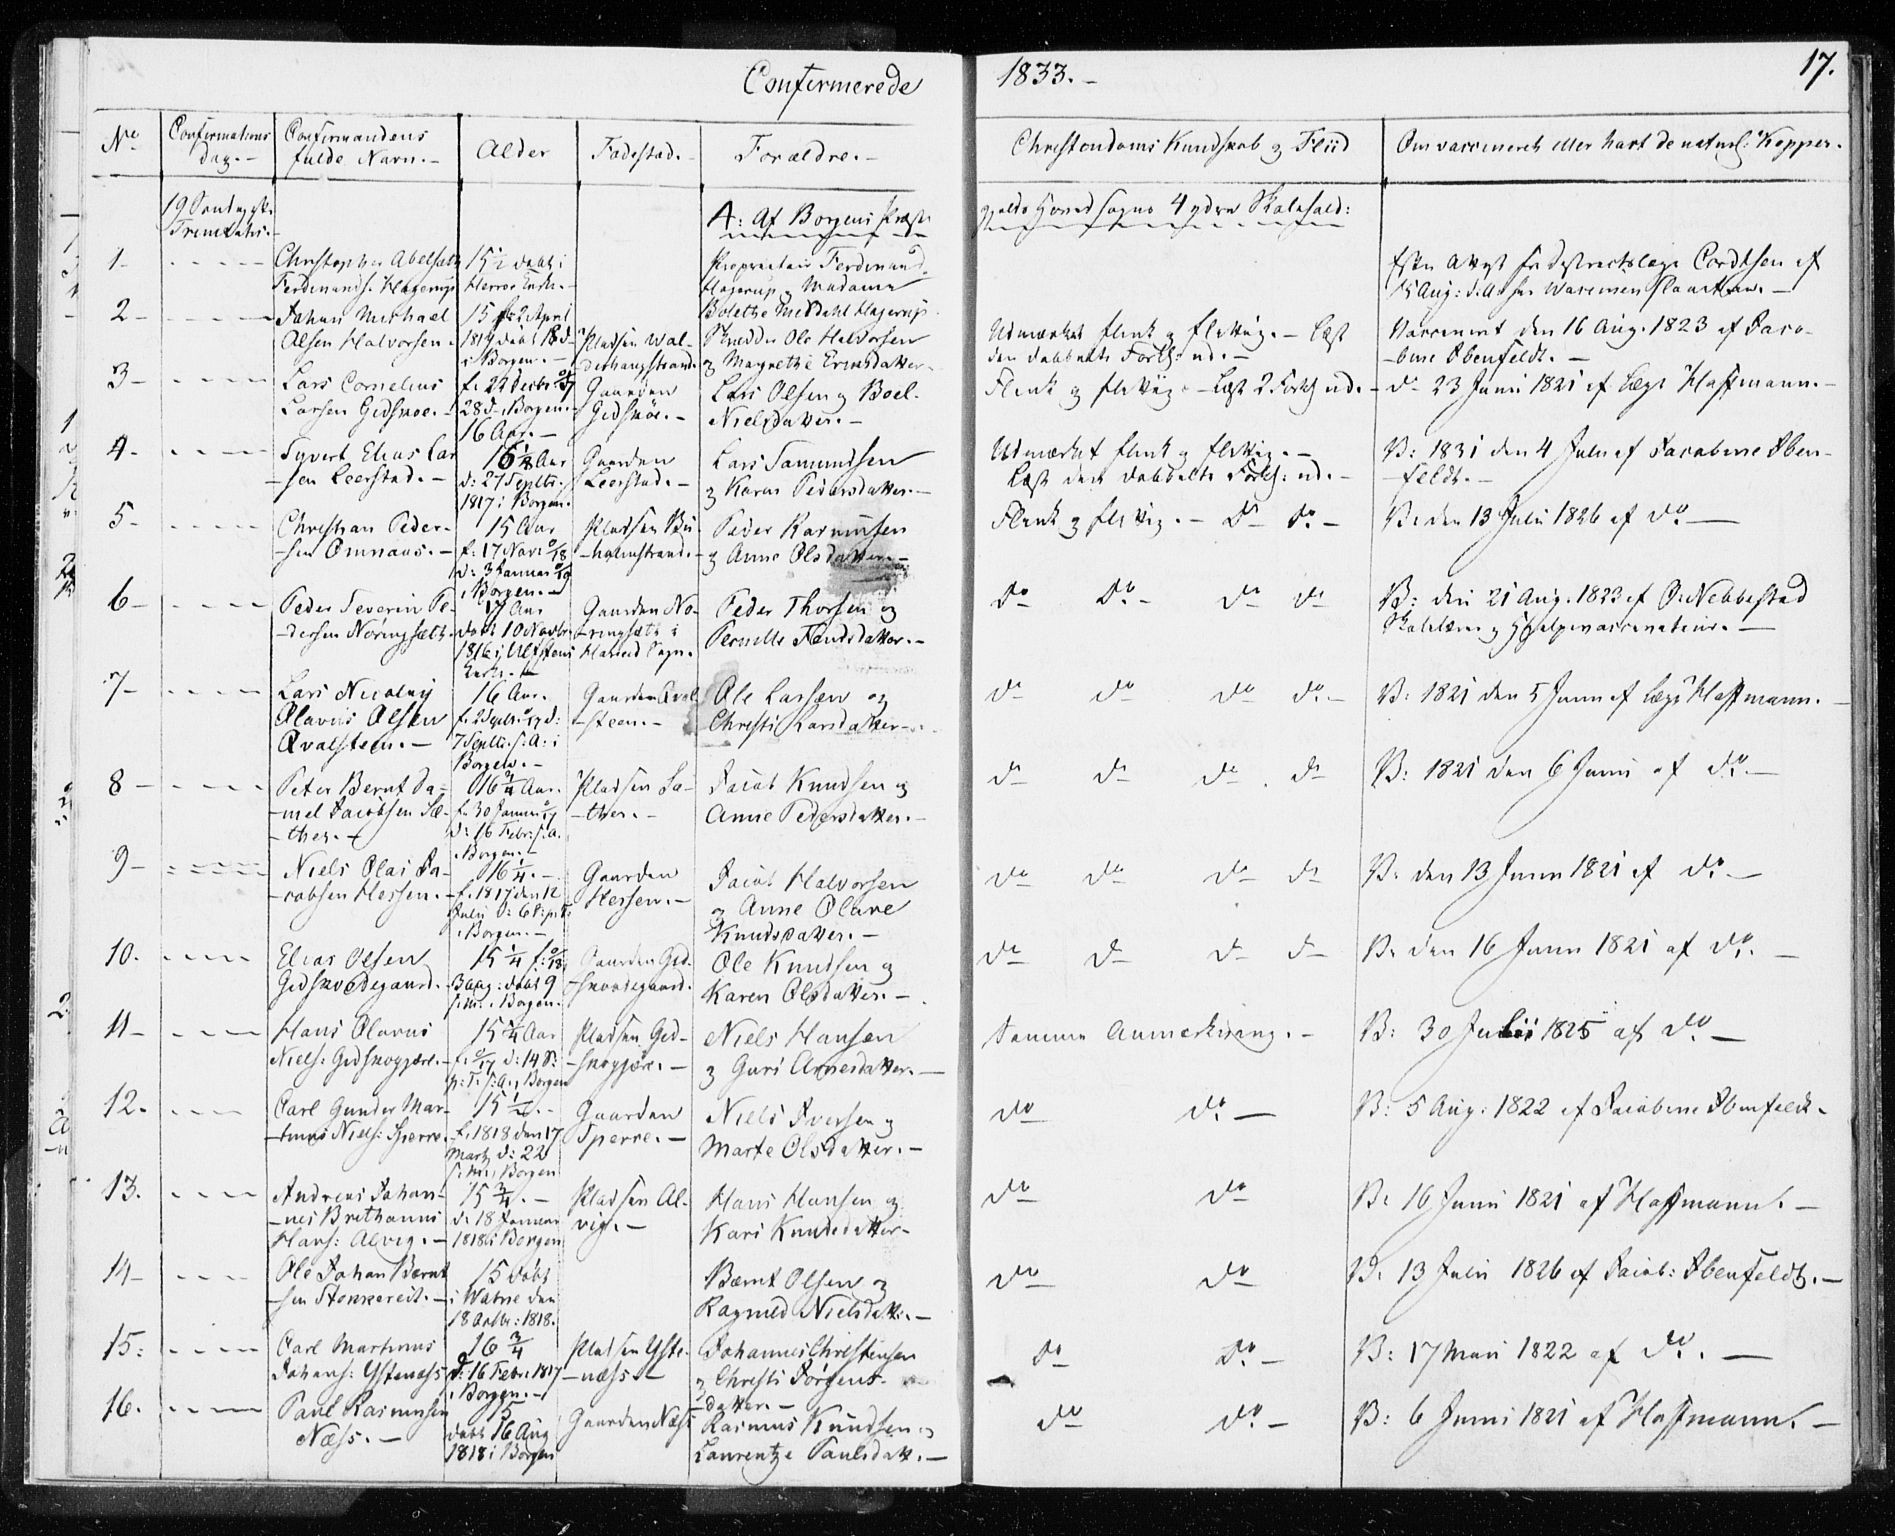 Confirmerede 1833. 17.
No Confirmations Dag. Confirmandens fulde Navn. Alder Fødested. Forældre. Christendoms Kundskab og Fliid Om vaccineret eller havt de naturl: Kopper.
19 Søndag eft. Trinitatis. A: Af Borgens Præstegjelds Hovedsogns 4 ydre Skolehold:
1 Christopher Abelseth Ferdinands. Hagerup 15½ døbt i Proprietair Ferdinand Hagerup og Madame Bolethe Meidehl Hagerup
15 Aug:
2 Johan Michael Olsen Halvorsen. 15 f. 2 April 1818 døbt i Borgen. Pladsen Wal-derhaugstrand. Ole Halvorsen og Margrethe Ericsdatter. Udmærket flink og flittig. Læst den dobbelte Forkl: ud. Vaccineret den 16 Aug. 1823 af Jaco-bine Ibenfeldt.
3 Lars Cornelius Larsen Gidskoe. 28 d. Borgen. 16 Aar. Gaarden Gidskøe. Lars Olsen og Boel Nielsdatter. Flink og flittig. Læst 2 Forkl: ud. do 23 Juni 1821 af Læge Hoffmann.
4 Syvert Elias Lar-sen Leerstad. 16 Aar d: 27 Septbr. 1817 i Borgen. Gaarden Leerstad. Lars Samundsen og Karen Pedersdatter. Udmærket flink og flittig. Læst den dobbelte Forkl: ud. V: 1831 den 4 Juli af Jacobine Iben-feldt.
5 Christian Peder-sen Omnaas. 15 Aar f. 17 Nov. 18 d: 3 Januar 19 i Borgen. Pladsen Bu-holmstrand. Peder Rasmusen og Anne Olsdatter. Flink og flittig. do do V: den 13 Juli 1826 af do
6 Peder Severin Pe-dersen Nøringsæth. 17 Aar døbt 10 Novbr. 1816 i Ulfstens Kirke. Gaarden Nø-ringsæth i Hareid Sogn. Peder Thorsen og Pernille Knudsdatter. do do do do V: den 21 Aug. 1823 af O: Nebbestad Skolelærer og Hjelpevaccinateur.
7 Lars Nicolay Olavus Olsen Qvalsteen. 16 Aar. f. 2 Septbr. 17 d: 7 Septbr. s: A: i Borgen. Gaarden Qval-steen. Ole Larsen og Christi Larsdatter do do do do V: 1821 den 5 Juni af Læge Hoffmann.
8 Peter Bernt Da-niel Jacobsen Sæ-ther. 16 ¾ Aar. f. 30 Januar 17 d: 16 Febr: s: A. i Borgen. Pladsen Sæ-ther. Jacob Knudsen og Anne Pedersdatter. do do do do V: 1821 den 6 Juni af do.
9 Niels Olai Ja-cobsen Hessen. 16 ¼. f. 1817 den 12 Juli i Borgen. Gaarden Hessen. Jacob Halvorsen og Anne Olave Knudsdatter. do do do do V. den 13 Juni 1821 af do.
10. Elias Olsen Gidskeødegaard. 15 ¼ f: 18 3 Aug: døbt 9 s: m: i Borgen. Gaarden Gid-skeødegaard. Ole Knudsen og Karen Olsdatter. do do do do V. den 16 Juni 1821 af do.
11 Hans Olavus Niels: Gidskegjøre. 15 ¾ Aar f. 17 d: 14 S: p: T: s: A. i Borgen Pladsen Gid-skegjøre. Niels Hansen og Guri Arnesdatter. Samme Anmærkning. V: 30 Julii 1825 af do
12. Carl Gunder Mar-tinus Niels: Sperre. 15 ½. f. 1818 den 17 Marts d: 22 s: m: i Borgen Gaarden Sperre. Niels Iversen og Marte Olsdatter. do do. V: 5 Aug: 1822 af Jacobine Ibenfeldt.
13. Andreas Johan-nes Brithanus Hans: Alvig. 15 ¾. d. 18 Januar 1818 i Borgen Pladsen Al-vig. Hans Hansen og Kari Knudsdatter do do V: 16 Juni 1821 af Hoffmann.
14 Ole Johan Bernt-sen Stokkereit. 15 døbt i Watne den 18 Octbr: 1818. Bernt Olsen og Ragnild Nielsdatt:. do do V. 13 Juli 1826 af Jacob: Ibenfeldt.
15: Carl Martinus Johans: Ystenæss 16 ¾ d: 16 Febr: 1817 i Borgen. Pladsen Yste-næss. Johannes Christensen og Christi Jørgens-datter. do do. V: 17 Mai 1822 af do.
16. Paul Rasmusen Næss. 15 døbt 16 Aug 1818 i Borgen Gaarden Næss Rasmus Knudsen og Laurentze Paulsdatt. do do. V: 6 Juni 1821 af Hoffmann.